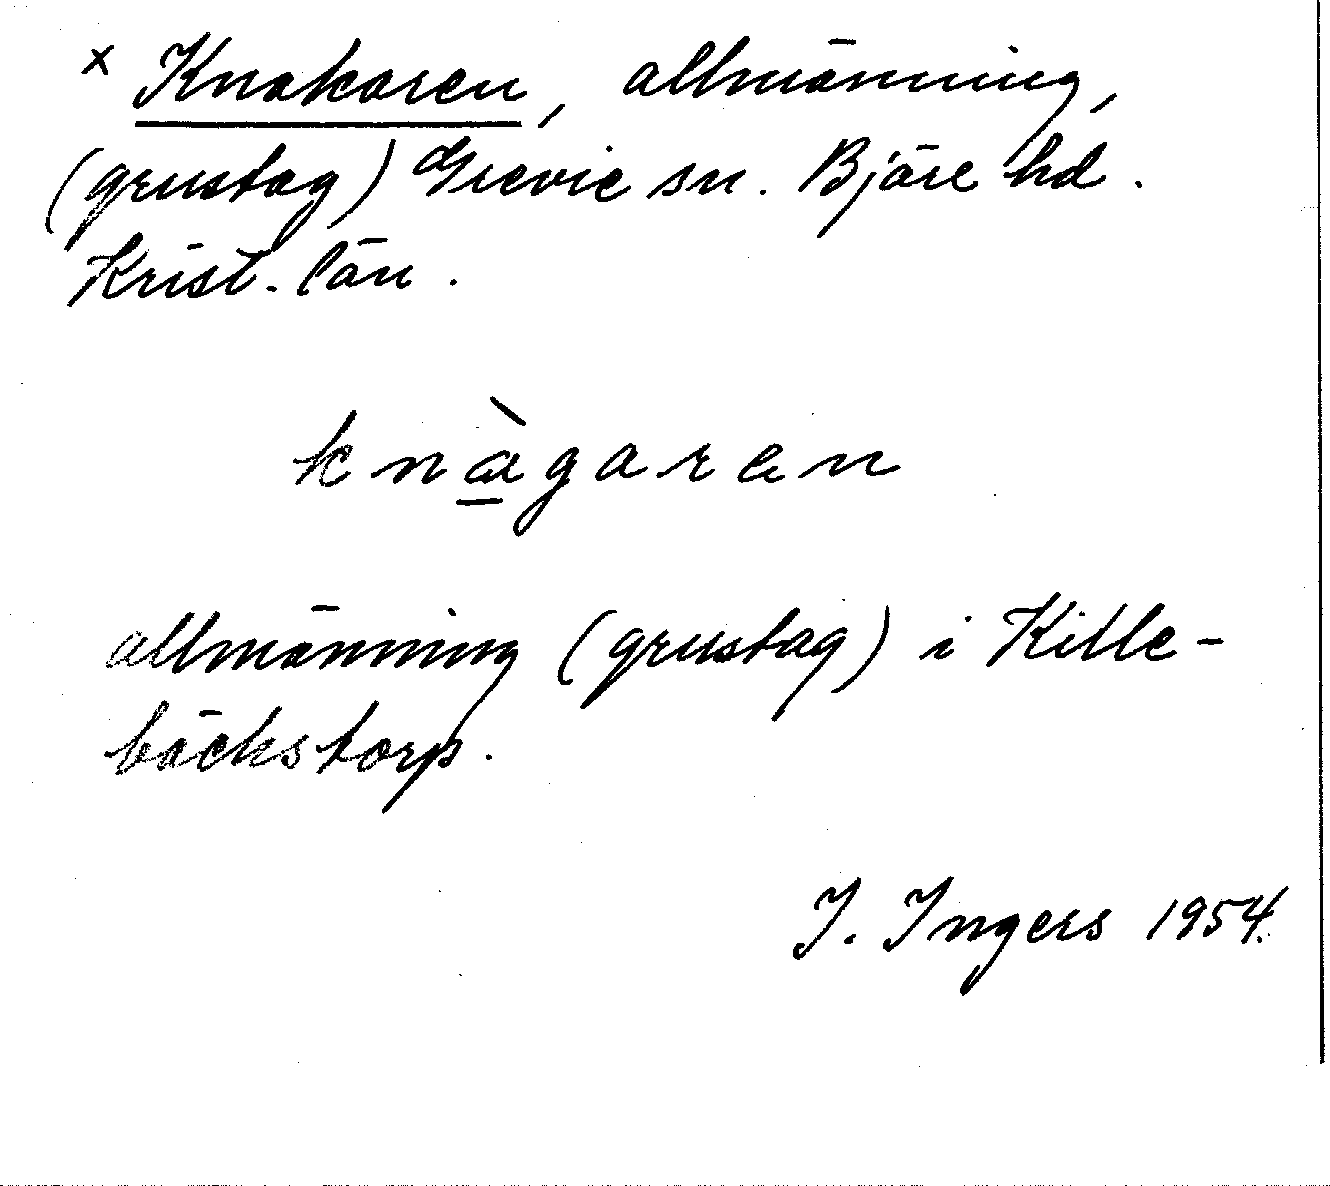 x Knakaren, allmänning,
(grustag) Grevie sn. Bjäre hd.
Krist. län.
knàgaren
allmänning (grustag) i Kille-
bäckstorp.
I. Ingers 1954.